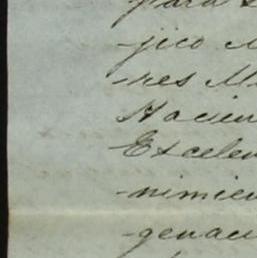 para
-jico
-res M
Hacien
Excelen
-nimien
-genaci